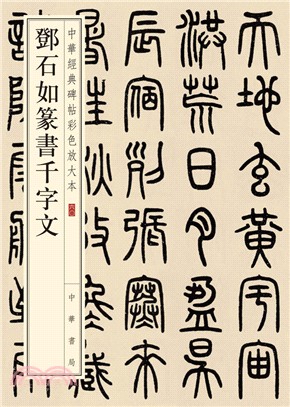 天地玄黃宇宙
洪荒日月盈昃
辰宿列張寒來
暑往秋收冬藏
中華經典碑帖彩色放大本
鄧石如篆書千字文
中華書局